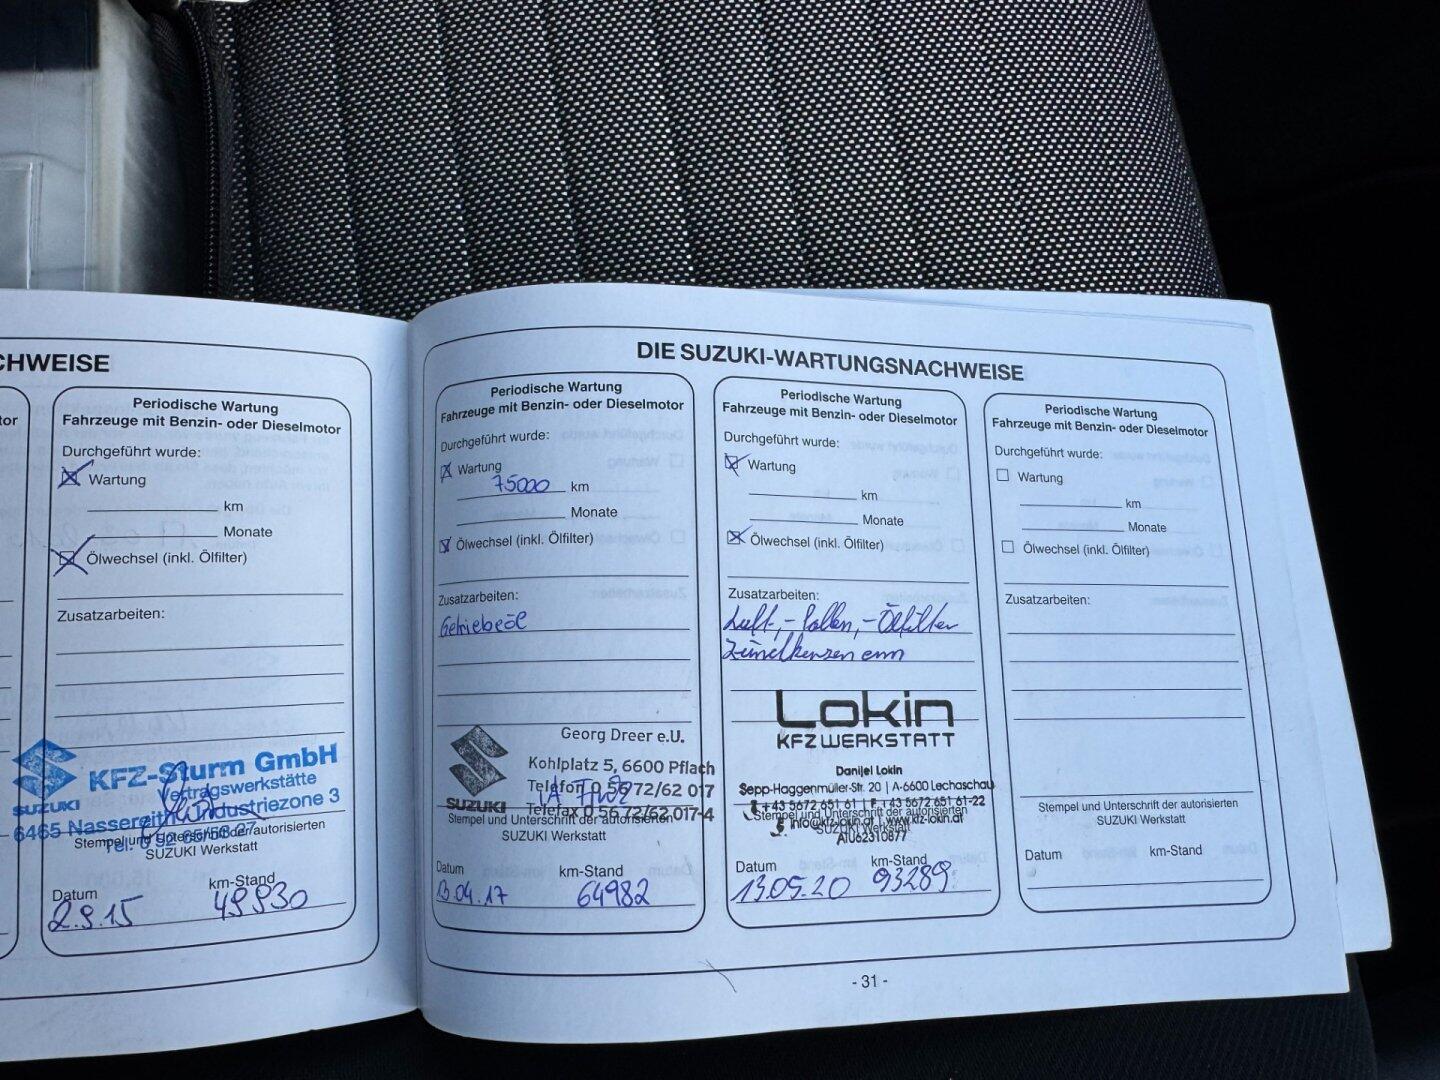 CHWEISE
tor
Periodische Wartung
Fahrzeuge mit Benzin- oder Dieselmotor
Durchgeführt wurde:
Wartung
km
Monate
Ölwechsel (inkl. Ölfilter)
Zusatzarbeiten:
SUZUKI
KFZ-Sturm GmbH
Vertragswerkstätte
6465 Nassereith Industriezone 3
Stempel und Unterschrift der autorisierten
SUZUKI Werkstatt
Datum km-Stand
2.9.15 49930
DIE SUZUKI-WARTUNGSNACHWEISE
Periodische Wartung
Fahrzeuge mit Benzin- oder Dieselmotor
Durchgeführt wurde:
Wartung
75000 km
Monate
Ölwechsel (inkl. Ölfilter)
Zusatzarbeiten:
Getriebeöl
SUZUKI
Georg Dreer e.U.
Kohlplatz 5, 6600 Pflach
Telefon 0 56 72/62 017
Telefax 0 56 72/62 017-4
Stempel und Unterschrift der autorisierten
SUZUKI Werkstatt
Datum km-Stand
13.04.17 64982
Periodische Wartung
Fahrzeuge mit Benzin- oder Dieselmotor
Durchgeführt wurde:
Wartung
km
Monate
Ölwechsel (inkl. Ölfilter)
Zusatzarbeiten:
Luft,-Pollen,-Ölfilter
Zündkerzen ern
Lokin
KFZ WERKSTATT
Danijel Lokin
Sepp-Haggenmüller-Str. 20 | A-6600 Lechaschau
+43 5672 651 61 | F +43 5672 651 61-22
info@kfz-lokin.at | www.kfz-lokin.at
ATU62310877
Stempel und Unterschrift der autorisierten
SUZUKI Werkstatt
Datum km-Stand
13.05.20 93289
Periodische Wartung
Fahrzeuge mit Benzin- oder Dieselmotor
Durchgeführt wurde:
Wartung
km
Monate
Ölwechsel (inkl. Ölfilter)
Zusatzarbeiten:
Stempel und Unterschrift der autorisierten
SUZUKI Werkstatt
Datum km-Stand
- 31 -